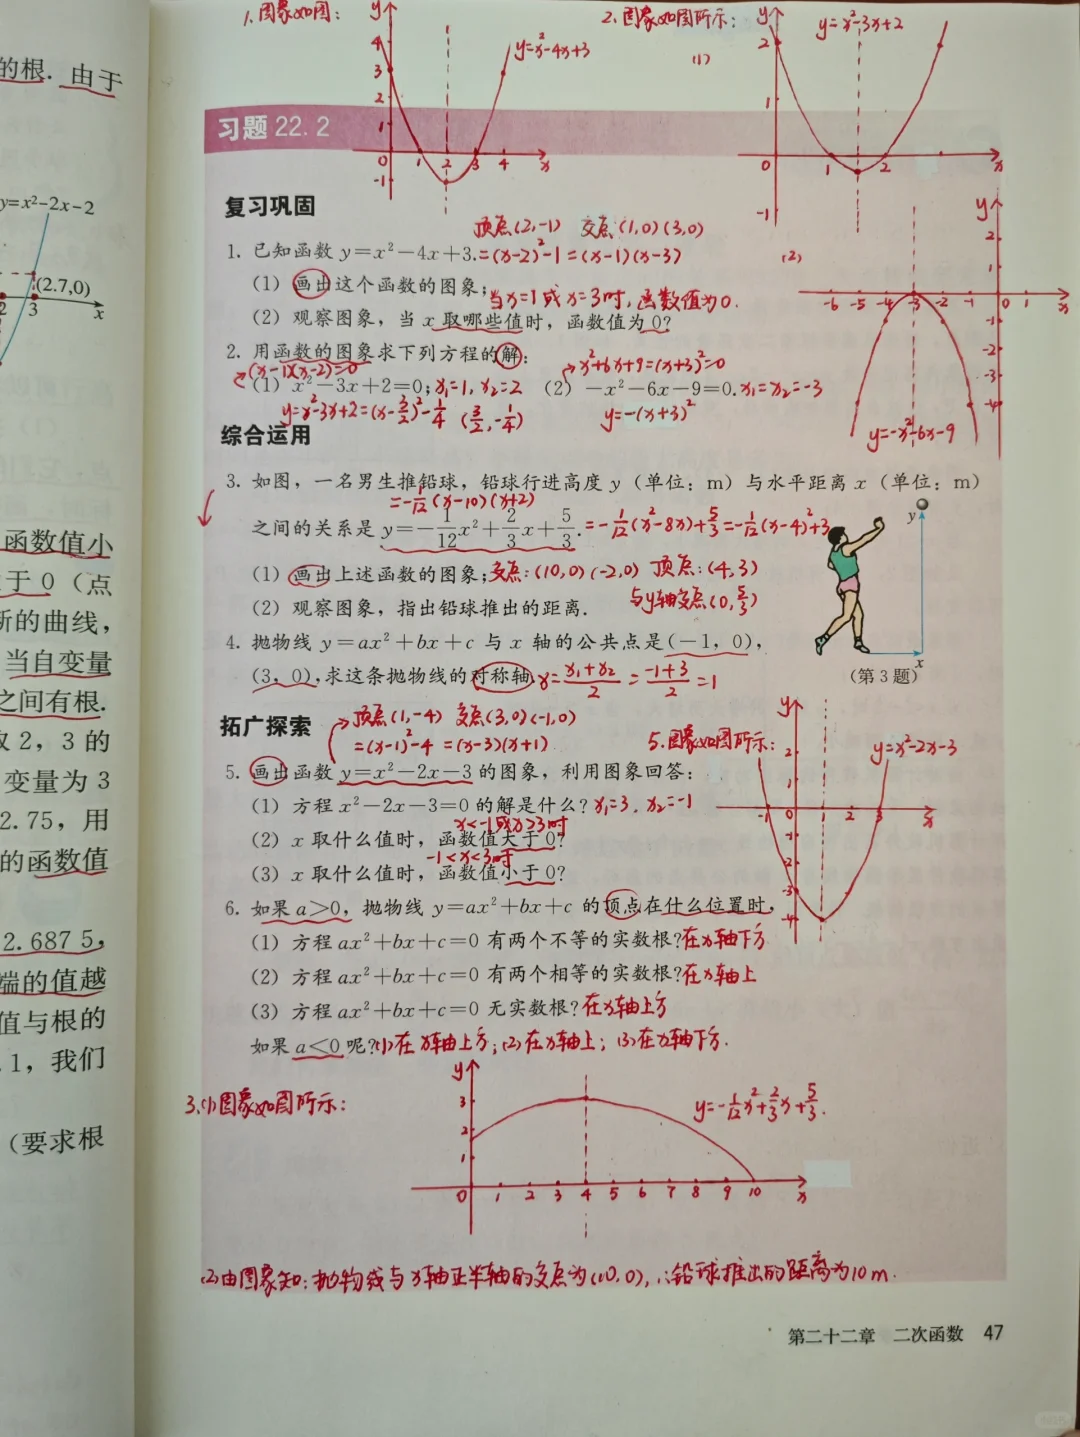 1.图象如图：
y=x²-4x+3
2.图象如图所示：
(1)
y=x²-3x+2
习题 22.2
复习巩固
顶点(2,-1) 交点(1,0)(3,0)
1. 已知函数 y=x²-4x+3.=(x-2)²-1=(x-1)(x-3)
(1) 画出这个函数的图象；
当x=1或x=3时,函数值为0.
(2) 观察图象，当 x 取哪些值时，函数值为 0？
2. 用函数的图象求下列方程的解：
(x-1)(x-2)=0
x²+6x+9=(x+3)²=0
(1) x²-3x+2=0；x₁=1, x₂=2 (2) -x²-6x-9=0.x₁=x₂=-3
y=x²-3x+2=(x-3/2)²-1/4 (3/2,-1/4) y=-(x+3)²
(2)
y=-x²-6x-9
综合运用
3. 如图，一名男生推铅球，铅球行进高度 y（单位：m）与水平距离 x（单位：m）
=-1/12(x-10)(x+2)
之间的关系是 y=-1/12x²+2/3x+5/3.=-1/12(x²-8x)+5/3=-1/12(x-4)²+3
(1) 画出上述函数的图象；交点：(10,0)(-2,0) 顶点：(4,3)
与y轴交点(0,5/3)
(2) 观察图象，指出铅球推出的距离.
4. 抛物线 y=ax²+bx+c 与 x 轴的公共点是(-1，0)，
(3，0)，求这条抛物线的对称轴.x=(x₁+x₂)/2=(-1+3)/2=1
(第 3 题)
拓广探索
顶点(1,-4) 交点(3,0)(-1,0)
=(x-1)²-4 =(x-3)(x+1)
5.图象如图所示：
y=x²-2x-3
5. 画出函数 y=x²-2x-3 的图象，利用图象回答：
(1) 方程 x²-2x-3=0 的解是什么？x₁=3. x₂=-1
x<-1或x>3时
(2) x 取什么值时，函数值大于 0？
-1<x<3时
(3) x 取什么值时，函数值小于 0？
6. 如果 a>0，抛物线 y=ax²+bx+c 的顶点在什么位置时，
(1) 方程 ax²+bx+c=0 有两个不等的实数根？在x轴下方
(2) 方程 ax²+bx+c=0 有两个相等的实数根？在x轴上
(3) 方程 ax²+bx+c=0 无实数根？在x轴上方
如果 a<0 呢？(1)在x轴上方；(2)在x轴上；(3)在x轴下方.
3.(1)图象如图所示：
y=-1/12x²+2/3x+5/3.
(2)由图象知：抛物线与x轴正半轴的交点为(10,0),∴铅球推出的距离为10m.
第二十二章 二次函数 47
的根. 由于
y=x²-2x-2
(2.7,0)
函数值小
于 0（点
新的曲线，
当自变量
之间有根.
取 2，3 的
变量为 3
2.75，用
的函数值
2.687 5，
端的值越
值与根的
.1，我们
（要求根